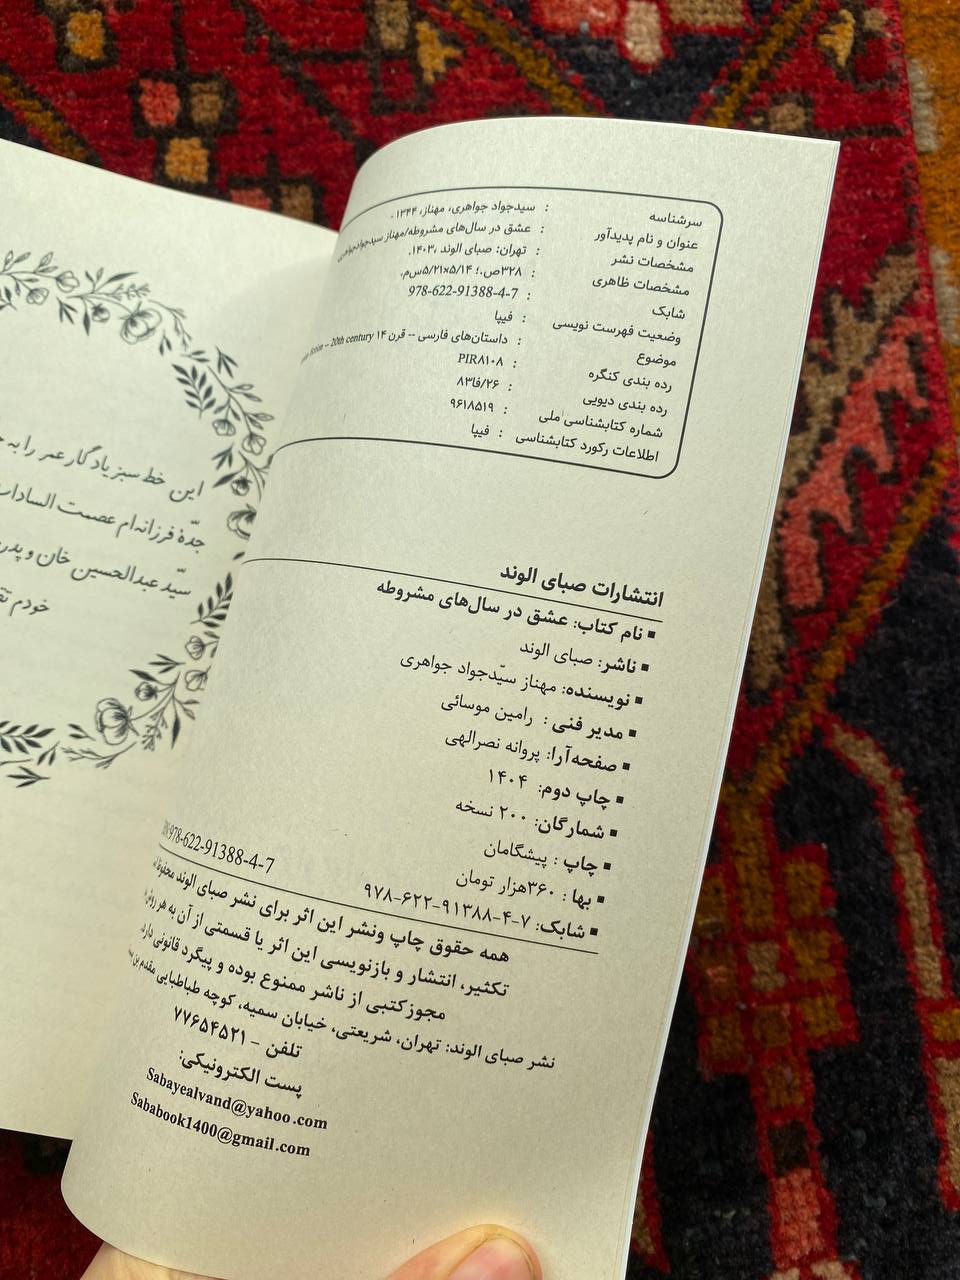 سرشناسه : سیدجواد جواهری، مهناز، ۱۳۴۴ -
عنوان و نام پدیدآور : عشق در سال‌های مشروطه/مهناز سیدجواد جواهری.
مشخصات نشر : تهران: صبای الوند ،۱۴۰۳.
مشخصات ظاهری : ۳۲۸ص.؛ ۵/۱۴×۵/۲۱س‌م.
شابک : 978-622-91388-4-7
وضعیت فهرست نویسی : فیپا
موضوع : داستان‌های فارسی -- قرن ۱۴ fiction -- 20th century
رده بندی کنگره : PIR۸۱۰۸
رده بندی دیویی : ۸۳فا/۲۶
شماره کتابشناسی ملی : ۹۶۱۸۵۱۹
اطلاعات رکورد کتابشناسی : فیپا
انتشارات صبای الوند
▪ نام کتاب: عشق در سال‌های مشروطه
▪ ناشر: صبای الوند
▪ نویسنده: مهناز سیّدجواد جواهری
▪ مدیر فنی : رامین موسائی
▪ صفحه‌آرا: پروانه نصرالهی
▪ چاپ دوم: ۱۴۰۴
▪ شمارگان: ۲۰۰ نسخه
▪ چاپ : پیشگامان
▪ بها : ۳۶۰هزار تومان
▪ شابک: ۷-۴-۹۱۳۸۸-۶۲۲-۹۷۸ 978-622-91388-4-7
همه حقوق چاپ ونشر این اثر برای نشر صبای الوند محفوظ
تکثیر، انتشار و بازنویسی این اثر یا قسمتی از آن به هر روش
مجوزکتبی از ناشر ممنوع بوده و پیگرد قانونی دارد.
نشر صبای الوند: تهران، شریعتی، خیابان سمیه، کوچه طباطبایی مقدم
تلفن – ۷۷۶۵۴۵۲۱
پست الکترونیکی:
Sabayealvand@yahoo.com
Sababook1400@gmail.com
این خط سبز یادگار عمر را به
جدّهٔ فرزانه‌ام عصمت السادات
سیّد عبدالحسین خان و پدر
خودم